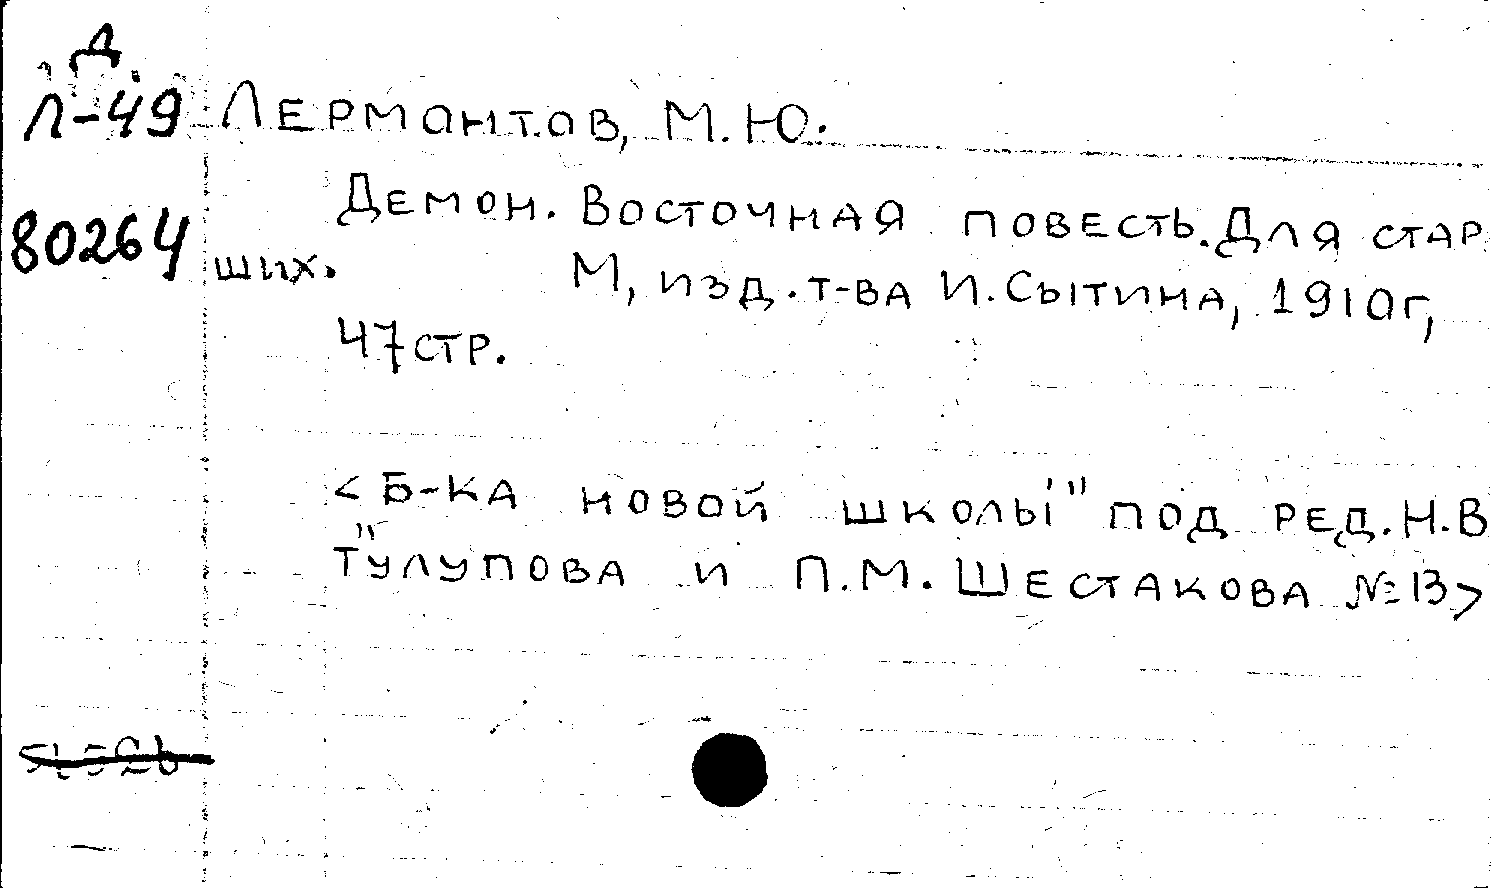 Д
Л-49 Лермантов, М.Ю.
Демон. Восточная повесть. Для стар
80264
ших. М, изд. т-ва И. Сытина, 1910г,
47 стр.
<Б-ка новой школы" под ред. Н.В
"
Тулупова и П.М. Шестакова №13>